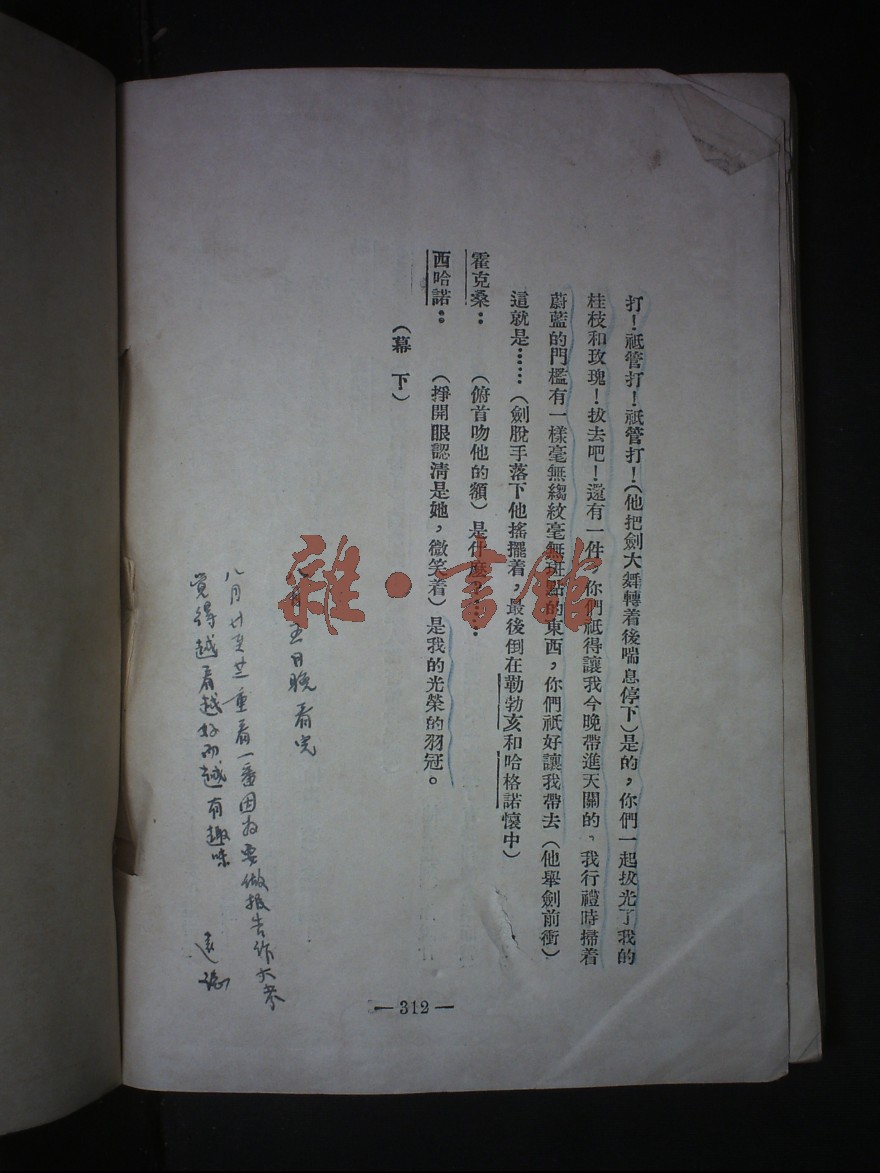 打！祗管打！祗管打！（他把劍大舞轉着後喘息停下）是的，你們一起拔光了我的
桂枝和玫瑰！拔去吧！還有一件，你們祗得讓我今晚帶進天關的，我行禮時掃着
蔚藍的門檻有一樣毫無縐紋毫無斑點的東西，你們祗好讓我帶去（他舉劍前衝）
這就是……（劍脫手落下他搖擺着，最後倒在勒勃亥和哈格諾懷中）
霍克桑：（俯首吻他的額）是什麼？……
西哈諾：（掙開眼認清是她，微笑着）是我的光榮的羽冠。
（幕 下）
月五日晚看完
八月廿至廿二重看一番因为要做报告作大考
觉得越看越好而越有趣味
—312—
雜·書館